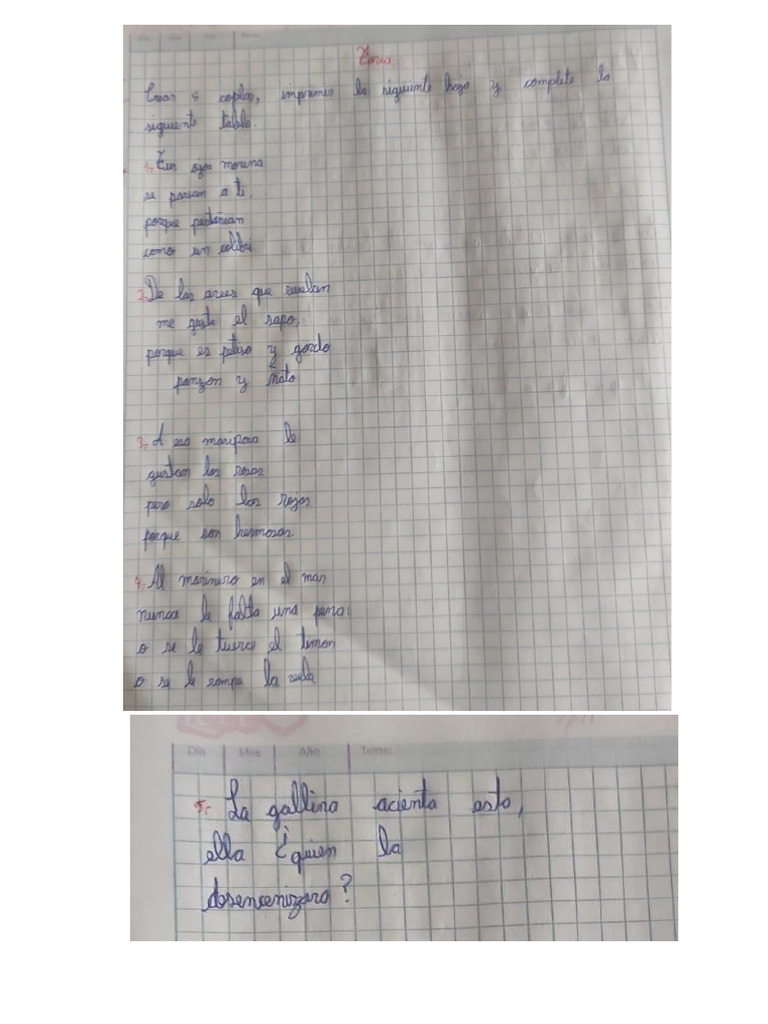 Tarea.
Crear 5 coplas, imprimir la siguiente hoja y complete la
siguiente tabla.
1.- Tus ojos morena
se parecen a ti,
porque pestañean
como un colibri
2.- De las aves que vuelan
me gusta el sapo,
porque es petiso y gordo
panzon y ñato
3.- A esa mariposa le
gustan las rosas
pero solo las rojas
porque son hermosas.
4.- Al marinero en el mar
nunca le falta una pena:
o se le tuerce el timon
o se le rompe la vela
Día Mes Año Tema:
5.- La gallina acienta esta,
ella ¿quien la
desencenizara?